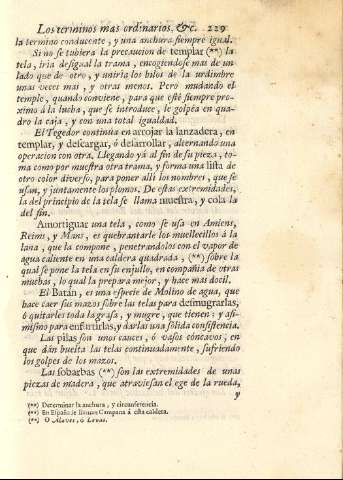 Los terminos mas ordinarios, &c. 229
la termino conducente, y una anchura siempre igual.
Si no se tubiera la precaucion de templar (**) la
tela, iria desigual la trama, encogiendose mas de un
lado que de otro, y uniria los hilos de la urdimbre
unas veces mas, y otras menos. Pero mudando el
temple, quando conviene, para que esté siempre proxi-
mo à la lucha, que se introduce, le golpéa en qua-
dro la caja, y con una total igualdad.
El Tegedor continúa en arrojar la lanzadera, en
templar, y descargar, ó desarrollar, alternando una
operacion con otra. Llegando yá al fin de su pieza, to-
ma como por muestra otra trama, y forma una lista de
otro color diverso, para poner alli los nombres, que se
usan, y juntamente los plomos. De estas extremidades,
la del principio de la tela se llama muestra, y cola la
del fin.
Amortiguar una tela, como se usa en Amiens,
Reims, y Mans, es quebrantarle los muellecillos á la
lana, que la compone, penetrandolos con el vapor de
agua caliente en una caldera quadrada, (**) sobre la
qual se pone la tela en su enjullo, en compañia de otras
muchas, lo qual la prepara mejor, y hace mas docil.
El Batán, es una especie de Molino de agua, que
hace caer sus mazos sobre las telas para desmugrarlas,
ó quitarles toda la grasa, y mugre, que tienen: y asi-
mismo para enfurtirlas, y darlas una sólida consistencia.
Las pilas son unos cauces, ó vasos cóncavos, en
que dán buelta las telas continuadamente, sufriendo
los golpes de los mazos.
Las sobarbas (**) son las extremidades de unas
piezas de madera, que atraviesan el ege de la rueda,
y
(**) Determinar la anchura, y circunferencia.
(**) En Español le llaman Campana á esta caldera.
(**) O Alaves, ó Levas.